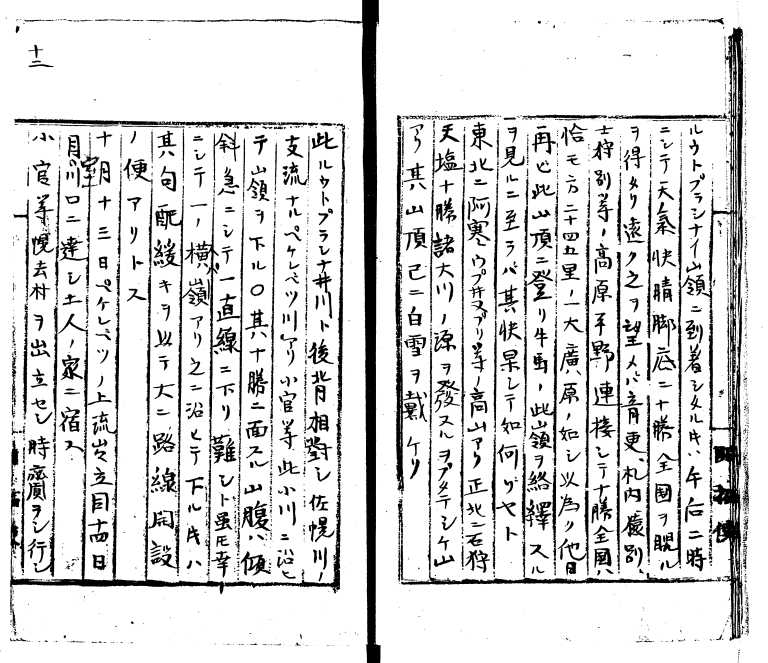 ルウトプラシナイ山嶺ニ到着シタルキハ午后二時
ニシテ天氣快晴脚底ニ十勝全國ヲ覗ル
ヲ得タリ遠ク之ヲ望メバ音更、札内、猿別、
士狩別等ノ高原平野連接シテ十勝全國ハ
恰モ方二十四五里ノ大廣原ノ如シ以為ク他日
再ビ此山頂ニ登リ牛馬ノ此山嶺ヲ絡繹スル
ヲ見ルニ至ラバ其快果シテ如何ゾヤト
東北ニ阿寒ウプヌプリ等ノ高山アリ正北ニ石狩
天塩十勝諸大川ノ源ヲ發スルヲプタテシケ山
アリ其山頂已ニ白雪ヲ戴ケリ
十二
此ルウトプラシナ井川ト後背相對シ佐幌川ノ
支流ナルペケレベツ川アリ小官等此小川ニ沿ヒ
テ山嶺ヲ下ル〇其十勝ニ面スル山腹ハ傾
斜急ニシテ一直線ニ下リ難シト雖モ幸
ニシテ一ノ横嶺アリ之ニ沿ヒテ下ルキハ
其勾配緩キヲ以テ大ニ路線開設
ノ便アリトス
十月十三日ペケレベツノ上流出立同十四日
室川口ニ達シ土人ノ家ニ宿ス
小官等幌去村ヲ出立セシ時齎ラシ行シ